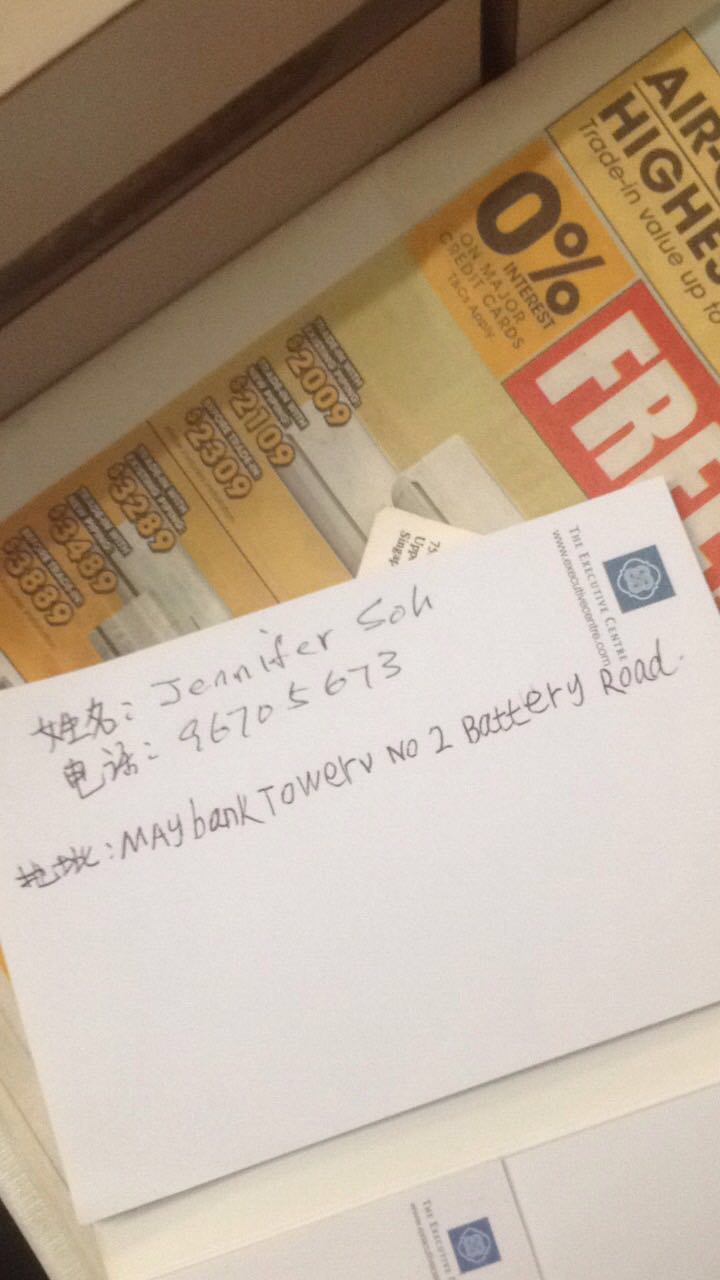 AIR-
HIGHES
Trade-in value up to
0%
INTEREST
ON MAJOR
CREDIT CARDS
T&Cs Apply
FREE
$2009
$2109
$2309
$3289
$3489
$3889
75
Uppe
Singap
THE EXECUTIVE CENTRE
www.executivecentre.com
姓名: Jennifer Soh
电话: 96705673
地址: MAYbank Towerv No 2 Battery Road.
THE EXECUTIVE
www.executive